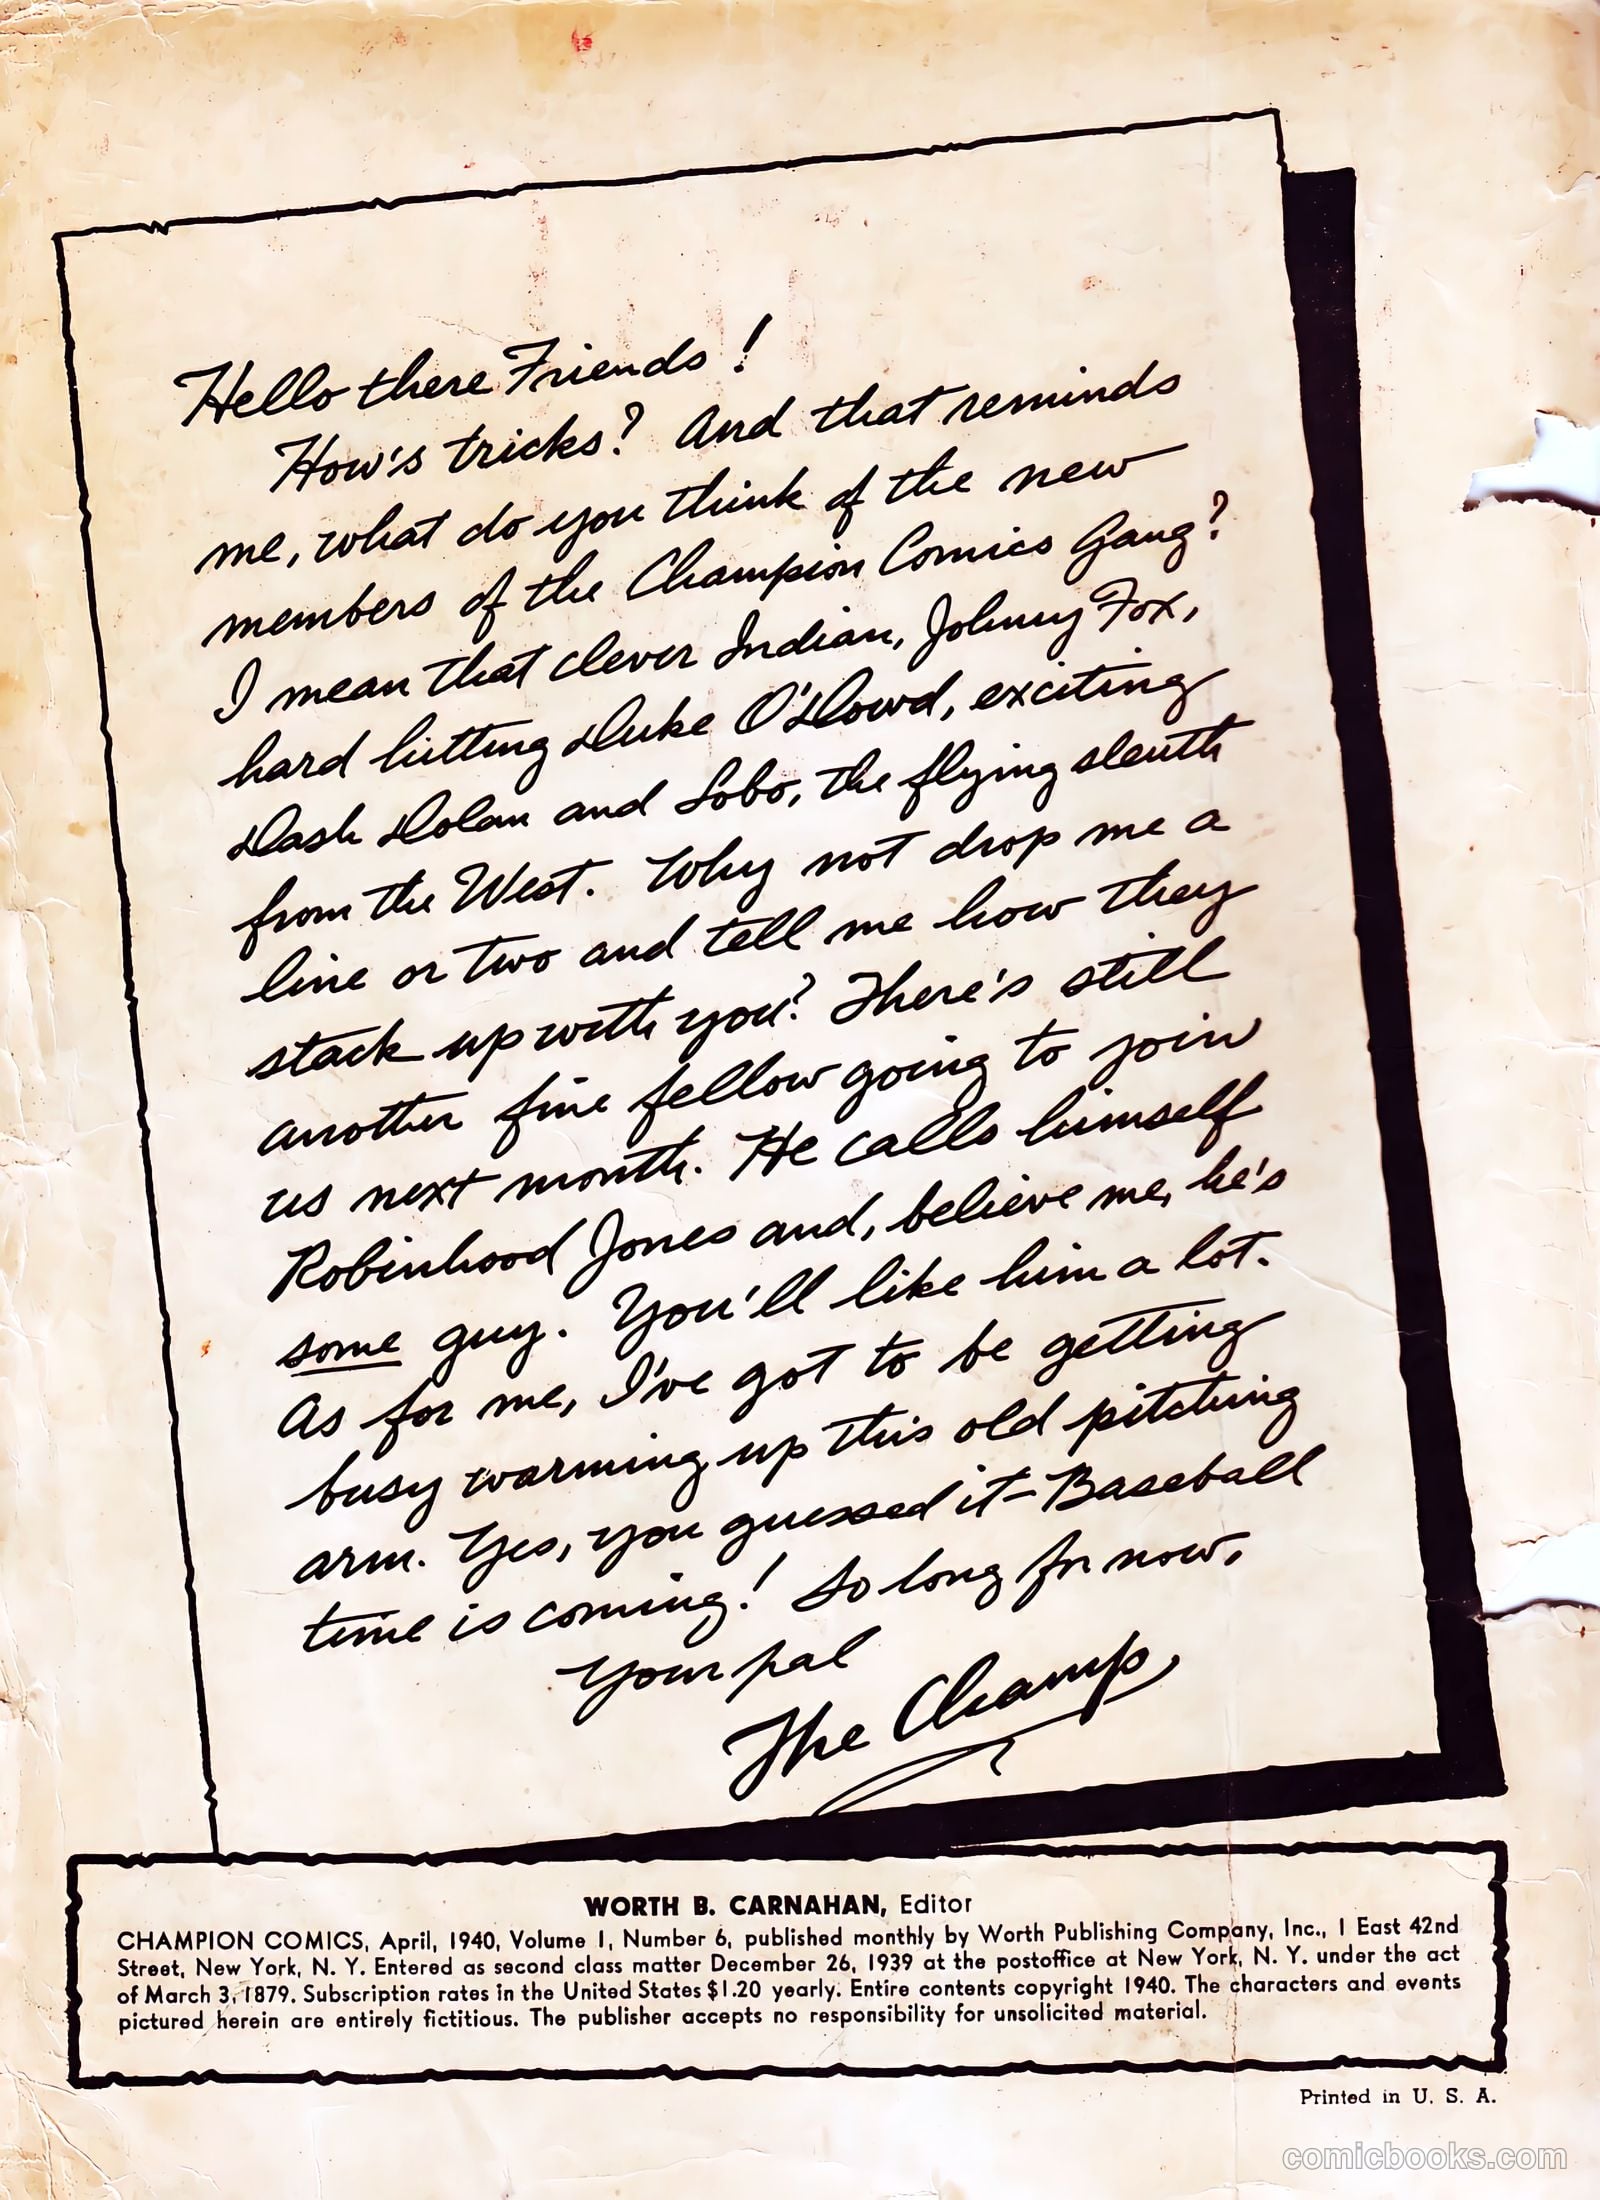 Hello there Friends!
How's tricks? And that reminds
me, what do you think of the new
members of the Champion Comics Gang?
I mean that clever Indian, Johnny Fox,
hard hitting Duke O'Dowd, exciting
Dash Dolan and Lobo, the flying sleuth
from the West. Why not drop me a
line or two and tell me how they
stack up with you? There's still
another fine fellow going to join
us next month. He calls himself
Robinhood Jones and, believe me, he's
some guy. You'll like him a lot.
As for me, I've got to be getting
busy warming up this old pitching
arm. Yes, you guessed it - Baseball
time is coming! So long for now,
Your pal
The Champ
WORTH B. CARNAHAN, Editor
CHAMPION COMICS, April, 1940, Volume 1, Number 6, published monthly by Worth Publishing Company, Inc., 1 East 42nd
Street, New York, N. Y. Entered as second class matter December 26, 1939 at the postoffice at New York, N. Y. under the act
of March 3, 1879. Subscription rates in the United States $1.20 yearly. Entire contents copyright 1940. The characters and events
pictured herein are entirely fictitious. The publisher accepts no responsibility for unsolicited material.
Printed in U. S. A.
comicbooks.com